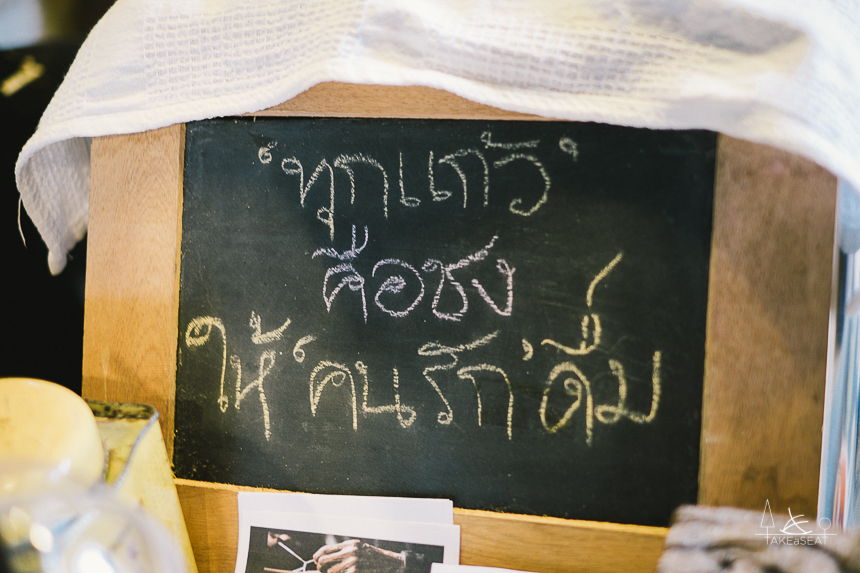 'ทุกแก้ว'
คือชง
ให้ 'คนรัก' ดื่ม
TAKEaSEAT